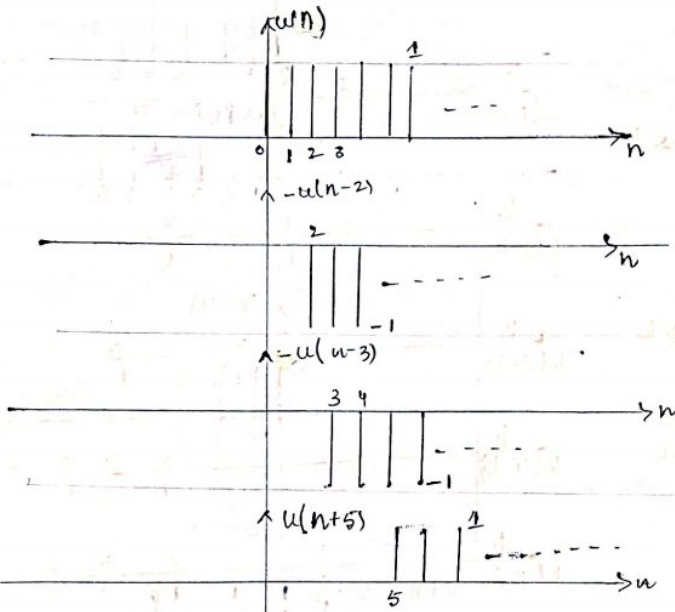 u(n)
1
0 1 2 3
n
-u(n-2)
2
n
-1
-u(n-3)
3 4
n
-1
u(n+5)
1
5
n